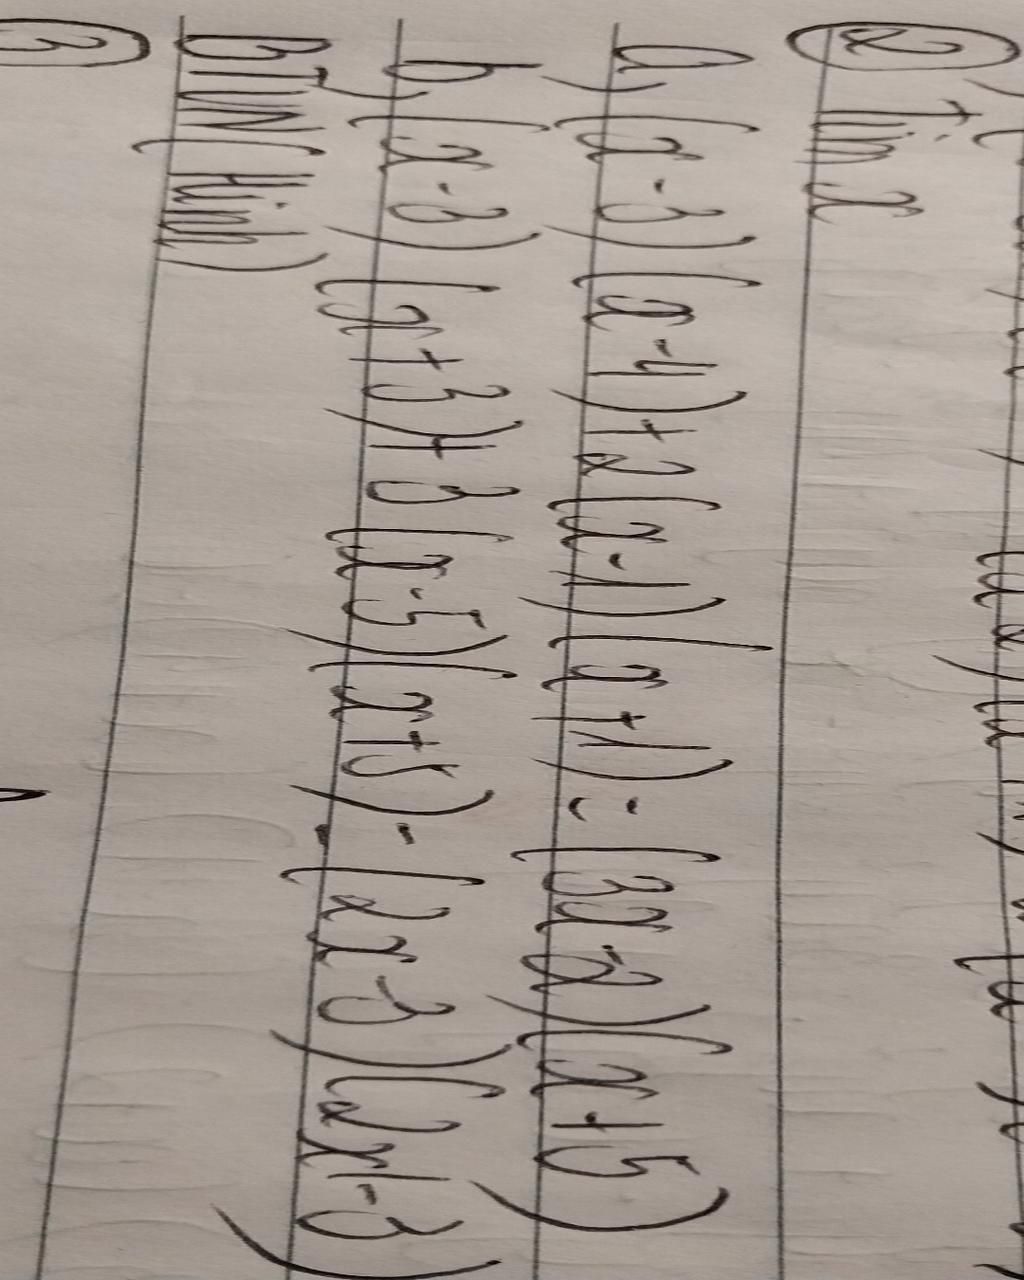 ② Tìm x
a, (x-3)(x-4)+2(x-1)(x+1) = (3x-2)(x+5)
b, (x-3)(x+3)+3(x-5)(x+5) - (2x-3)(2x-3)
BTVN( Hình)
③